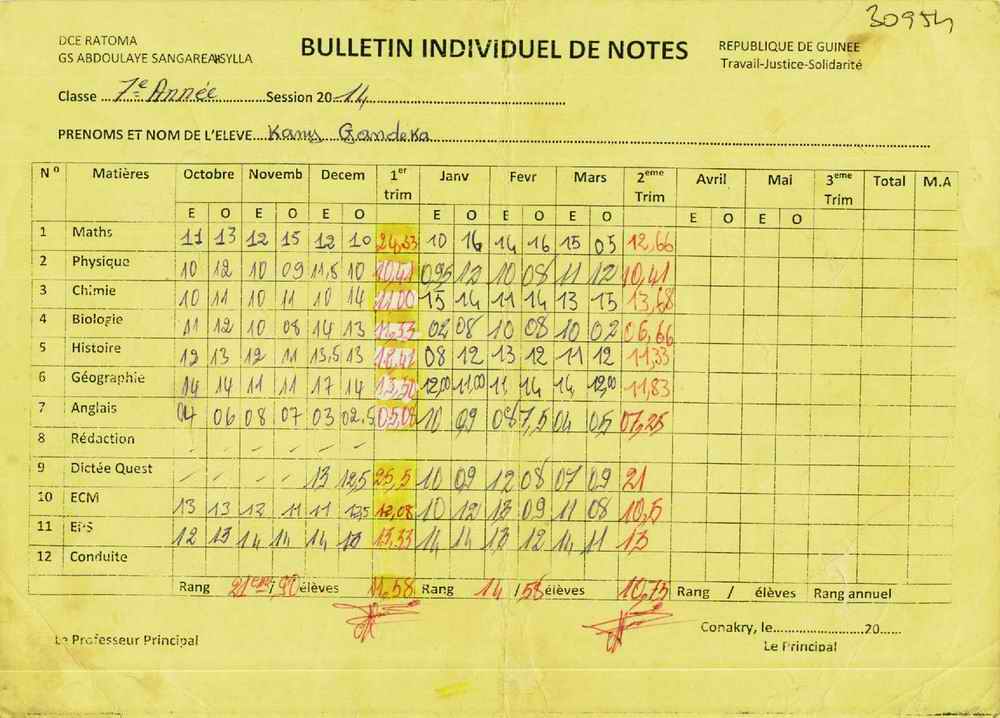 30954
DCE RATOMA
GS ABDOULAYE SANGAREA SYLLA
BULLETIN INDIVIDUEL DE NOTES
REPUBLIQUE DE GUINEE
Travail-Justice-Solidarité
Classe ... 7e Année ... Session 2014
PRENOMS ET NOM DE L'ELEVE... Kany Gandeka
N° Matières Octobre Novemb Decem 1er trim Janv Fevr Mars 2eme Trim Avril Mai 3eme Trim Total M.A
E O E O E O E O E O E O E O E O
1 Maths 11 13 12 15 12 10 10 16 14 16 15 05 12,66
2 Physique 10 12 10 09 11,5 10 10,41 095 12 10 08 11 12 10,41
3 Chimie 10 11 10 11 10 14 11,00 15 14 11 14 13 15 13,68
4 Biologie 11 12 10 08 14 13 11,33 02 08 10 08 10 02 06,66
5 Histoire 12 13 12 11 13,5 13 08 12 13 12 11 12 11,33
6 Géographie 14 14 11 11 17 14 12,00 11,00 11 14 14 12,00 11,83
7 Anglais 04 06 08 07 03 02,5 05,08 10 09 7,5 04 05 07,25
8 Rédaction - - - - - -
9 Dictée Quest - - - - 13 12,5 25,5 10 09 12 08 07 09 21
10 ECM 13 13 13 11 11 12,08 10 12 13 09 11 08 10,5
11 EPS 12 13 14 14 14 13 13,33 14 14 13 12 14 11 13
12 Conduite
Rang 21eme / 90 élèves 11,58 Rang 14 / 58 élèves 10,75 Rang / élèves Rang annuel
Le Professeur Principal
Conakry, le...............20......
Le Principal